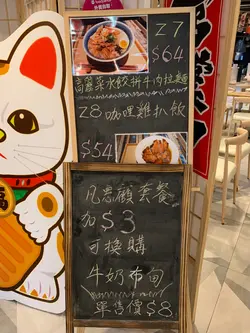 27
$64
高麗菜水餃拼牛肉拉麵
28 咖哩雞扒飯
$54
凡惠顧套餐
加$3
可換購
牛奶布甸
單售價$8